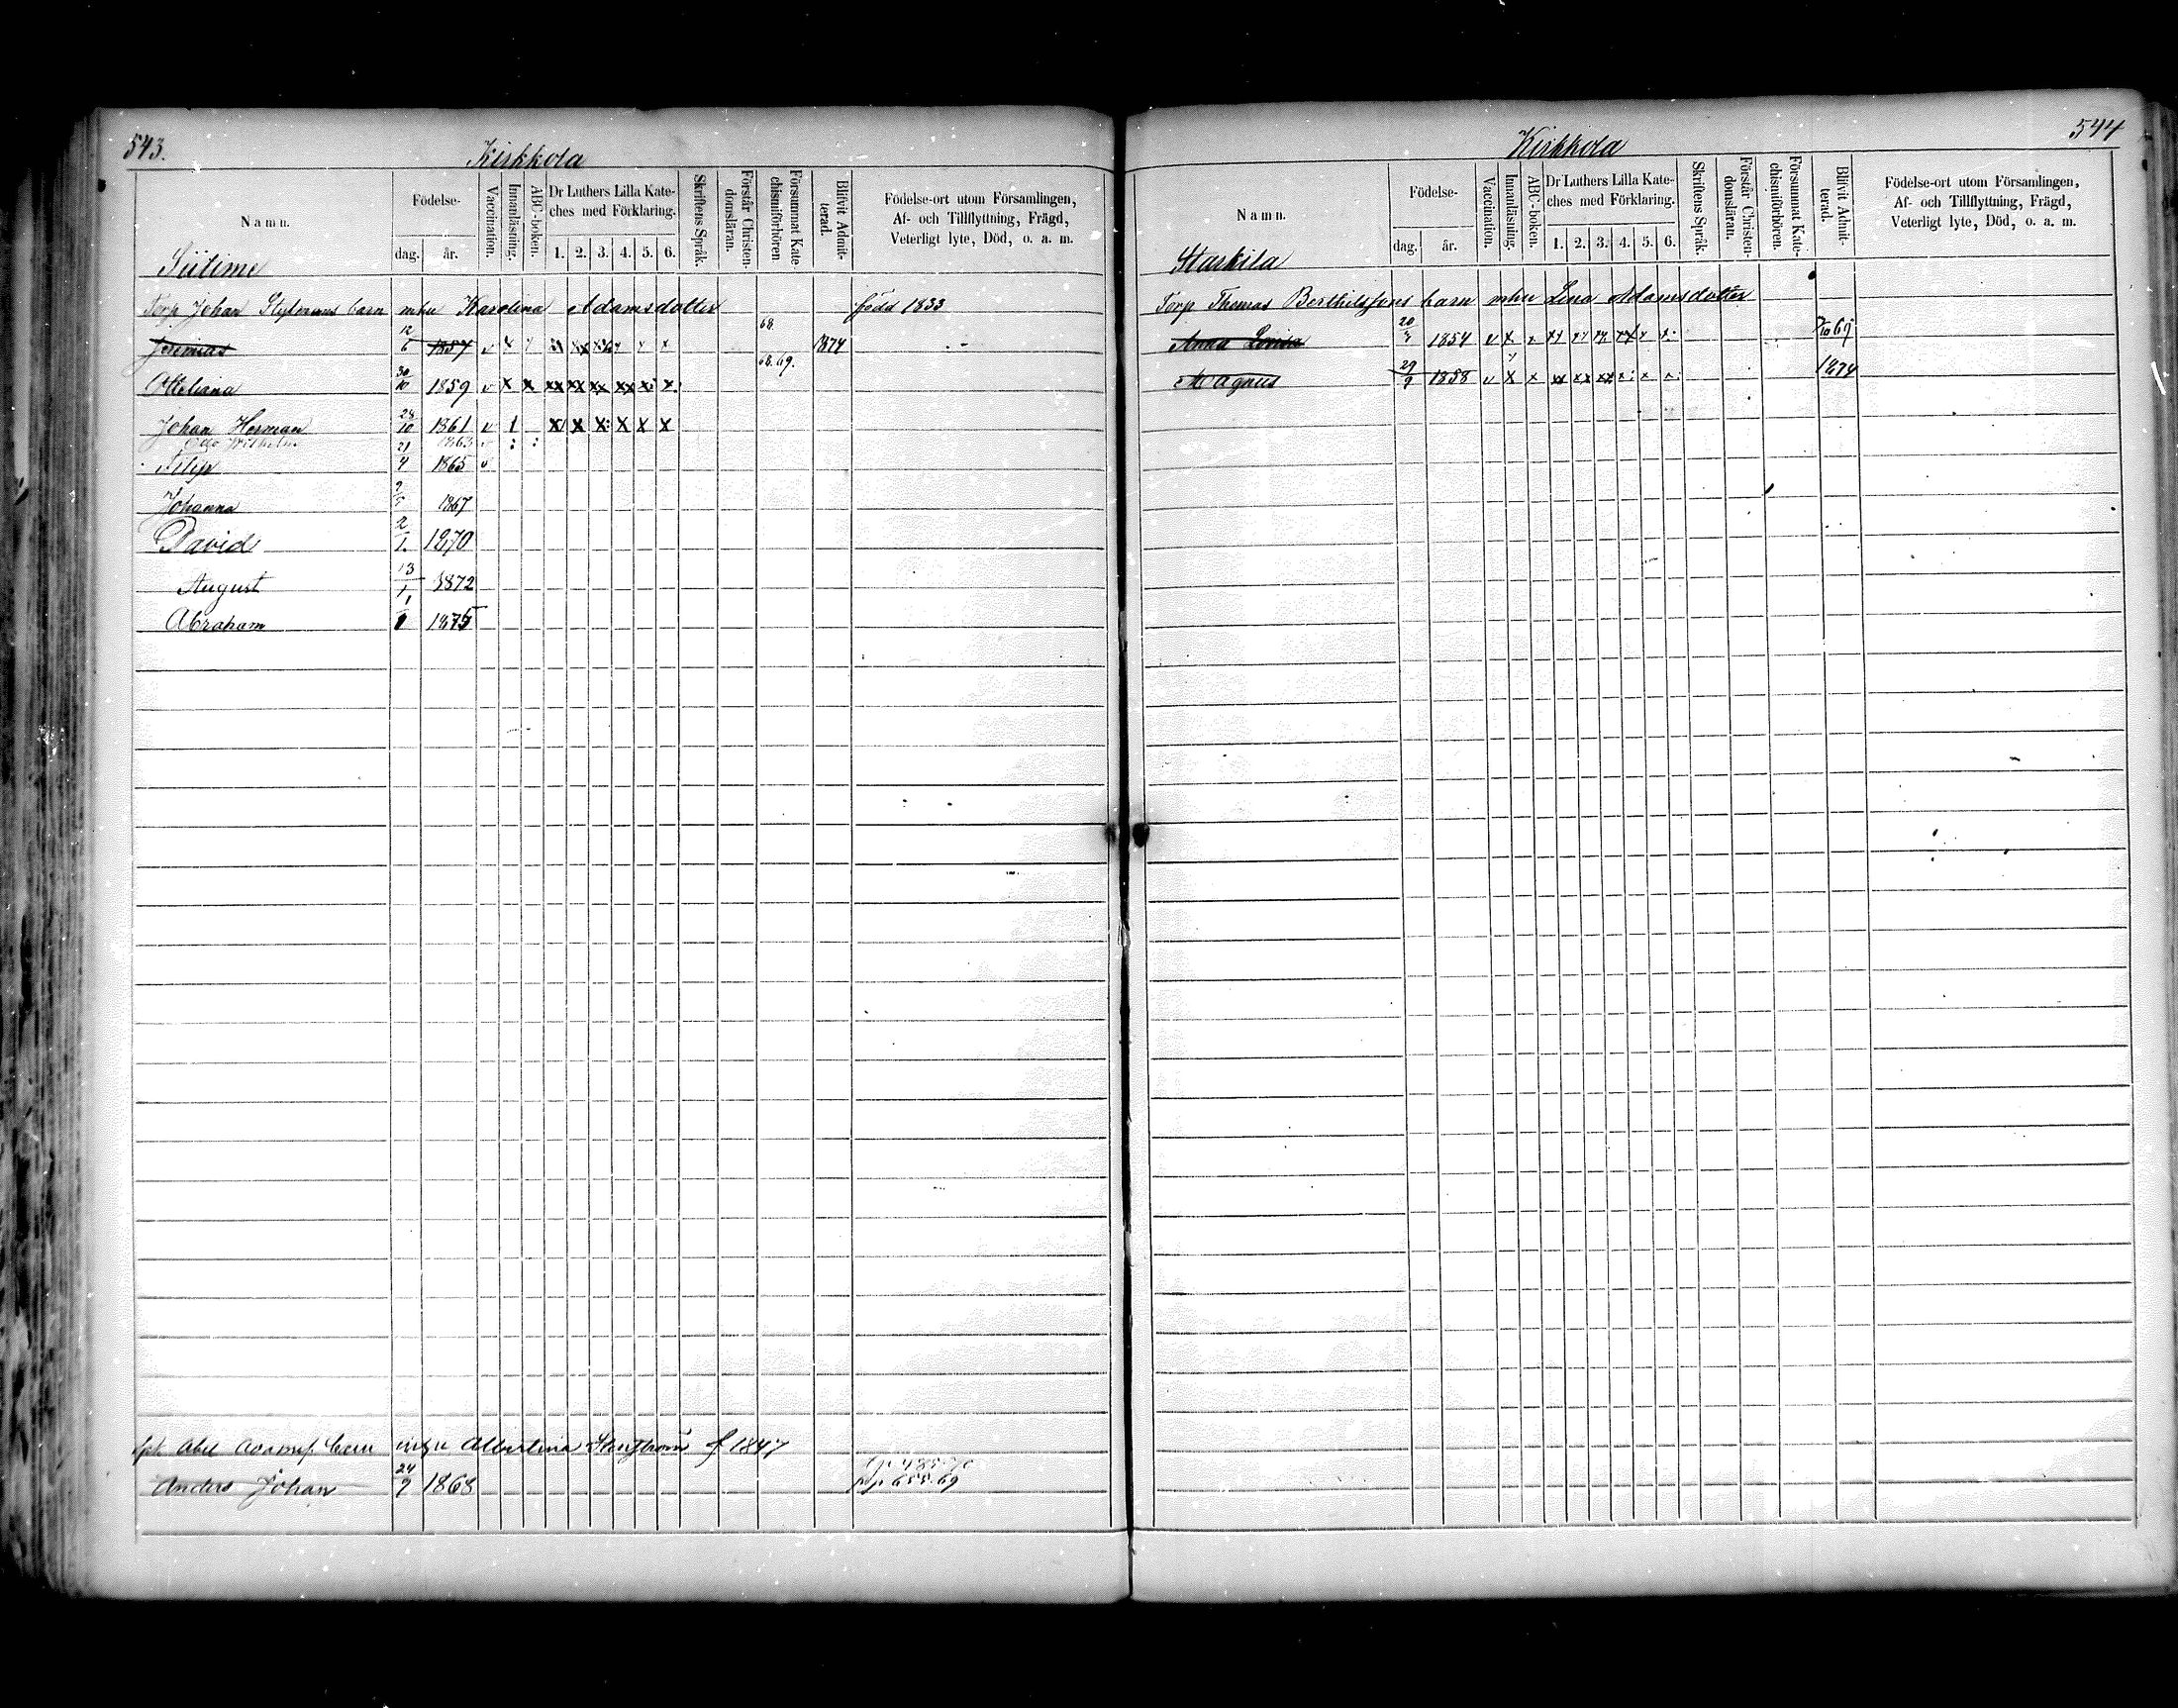 543.
Kirkkola
Namn.
Födelse-
dag. år.
Vaccination.
Innanläsning.
ABC-boken.
Dr Luthers Lilla Kate-
ches med Förklaring.
1. 2. 3. 4. 5. 6.
Skriftens Språk.
Förstår Christen-
domsläran.
Försummat Kate-
chismiförhören.
Blifvit Admit-
terad.
Födelse-ort utom Församlingen,
Af- och Tillflyttning, Frägd,
Veterligt lyte, Död, o. a. m.
Torp Johan barn mhu Karolina Adamsdotter född 1833
Jeremias 12/6 1857 v 68 1874
30/10 1859 v x x xx xx xx xx x x 68.69.
Johan Herman 28/10 1861 v x x x: x x x
Otto Wilhelm 1863
Filip 21/4 1865 v
Johanna 1867
David 2/1. 1870
August 13/1 1872
Abraham 1/1 1875
Abel Adamss. barn mhu Albertina f 1847
Anders Johan 24/9 1868
544
Kirkkola
Namn.
Födelse-
dag. år.
Vaccination.
Innanläsning.
ABC-boken.
Dr Luthers Lilla Kate-
ches med Förklaring.
1. 2. 3. 4. 5. 6.
Skriftens Språk.
Förstår Christen-
domsläran.
Försummat Kate-
chismiförhören.
Blifvit Admit-
terad.
Födelse-ort utom Församlingen,
Af- och Tillflyttning, Frägd,
Veterligt lyte, Död, o. a. m.
Starkila
Torp Thomas Berthilssons barn mhu Lena Adamsdotter
Anna Lovisa 1854 v x
Magnus 29/9 1858 v x x xx xx xx x: x x: 1874